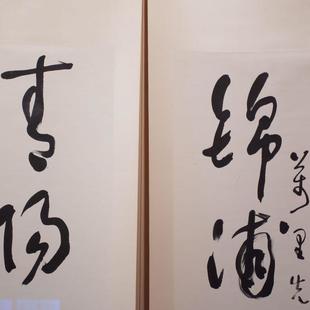 萬里先
錦浦
青陽